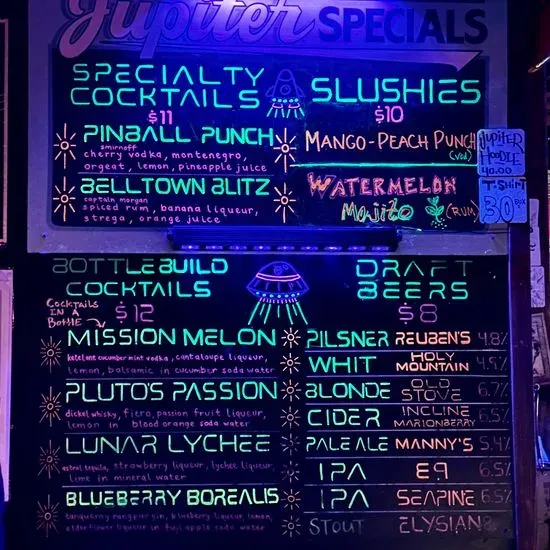 Jupiter SPECIALS
SPECIALTY
COCKTAILS
$11
PINBALL PUNCH
smirnoff
cherry vodka, montenegro,
orgeat, lemon, pineapple juice
BELLTOWN BLITZ
captain morgan
spiced rum, banana liqueur,
strega, orange juice
SLUSHIES
$10
MANGO-PEACH PUNCH
(vod)
WATERMELON
Mojito (RUM)
JUPITER
HOODIE
40.00
T-SHIRT
30
BOTTLEBUILD
COCKTAILS
Cocktails
IN A
BOTTLE
$12
MISSION MELON
ketel one cucumber mint vodka, cantaloupe liqueur,
lemon, balsamic in cucumber soda water
PLUTO'S PASSION
dickel whisky, fiero, passion fruit liqueur,
lemon in blood orange soda water
LUNAR LYCHEE
astral tequila, strawberry liqueur, lychee liqueur,
lime in mineral water
BLUEBERRY BOREALIS
tanqueray rangpur gin, blueberry liqueur, lemon,
elderflower liqueur in fuji apple soda water
DRAFT
BEERS
$8
PILSNER REUBEN'S 4.8%
WHIT HOLY MOUNTAIN 4.9%
BLONDE OLD STOVE 6.7%
CIDER INCLINE MARIONBERRY 6.5%
PALE ALE MANNY'S 5.4%
IPA E9 6.5%
IPA SEAPINE 6.5%
STOUT ELYSIAN